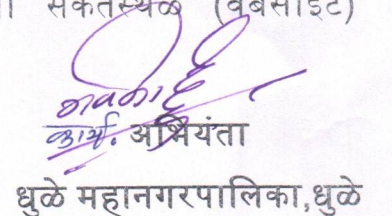 संकेतस्थळ (वेबसाईट)
कार्य. अभियंता
धुळे महानगरपालिका,धुळे